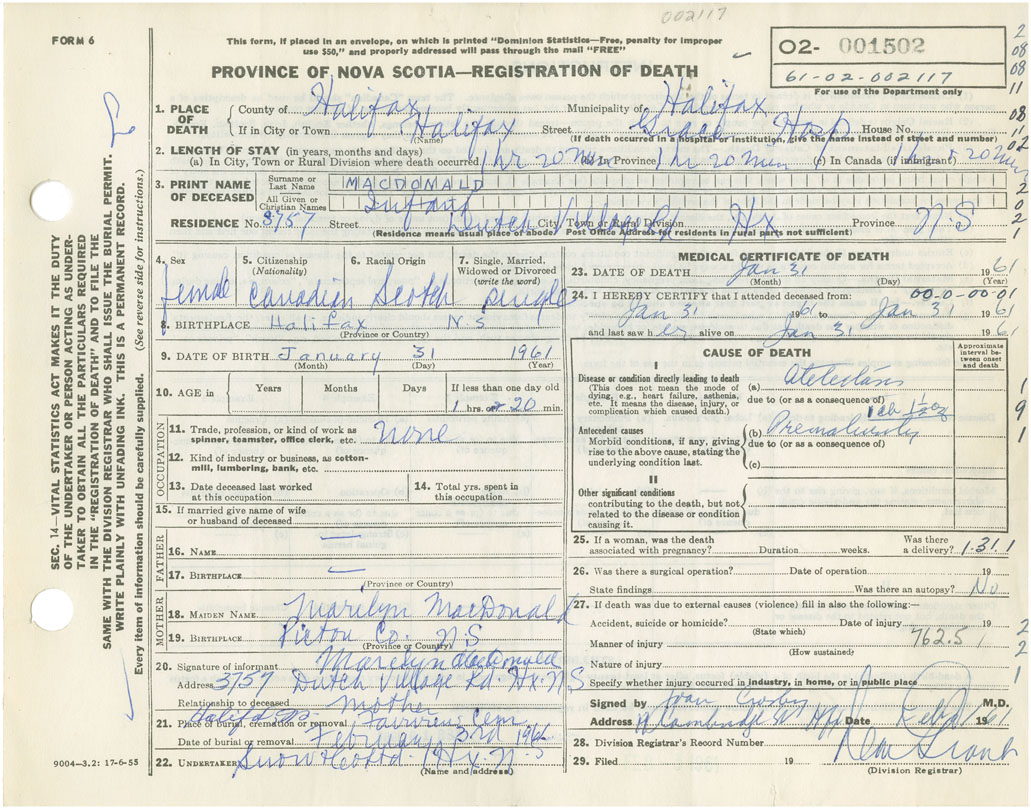 002117
FORM 6
This form, if placed in an envelope, on which is printed "Dominion Statistics—Free, penalty for improper
use $50," and properly addressed will pass through the mail "FREE"
O2- 001502
61-02-002117
For use of the Department only
PROVINCE OF NOVA SCOTIA—REGISTRATION OF DEATH
1. PLACE OF DEATH
County of Halifax Municipality of Halifax
If in City or Town Halifax Street Grace Hosp House No.
(Name) (If death occurred in a hospital or institution, give the name instead of street and number)
2. LENGTH OF STAY (in years, months and days)
(a) In City, Town or Rural Division where death occurred 1 hr 20 Min (b) In Province 1 hr 20 Min (c) In Canada (if immigrant) 20 Min
3. PRINT NAME OF DECEASED
Surname or Last Name MACDONALD
All Given or Christian Names Infant
RESIDENCE No. 3757 Street Dutch Village Rd City, Town or Rural Division Hx Province N.S
(Residence means usual place of abode. Post Office Address for residents in rural parts not sufficient)
4. Sex female
5. Citizenship (Nationality) Canadian
6. Racial Origin Scotch
7. Single, Married, Widowed or Divorced (write the word) Single
8. BIRTHPLACE Halifax N.S
(Province or Country)
9. DATE OF BIRTH January 31 1961
(Month) (Day) (Year)
10. AGE in Years Months Days If less than one day old
1 hrs. or 20 min.
OCCUPATION
11. Trade, profession, or kind of work as spinner, teamster, office clerk, etc. None
12. Kind of industry or business, as cotton-mill, lumbering, bank, etc.
13. Date deceased last worked at this occupation
14. Total yrs. spent in this occupation
15. If married give name of wife or husband of deceased
FATHER
16. NAME
17. BIRTHPLACE
(Province or Country)
MOTHER
18. MAIDEN NAME Marilyn MacDonald
19. BIRTHPLACE Pictou Co. N.S
(Province or Country)
20. Signature of informant Marilyn MacDonald
Address 3757 Dutch Village Rd. Hx. N S
Relationship to deceased Mother
21. Place of burial, cremation or removal Fairview Cem
Date of burial or removal February 3rd 196
22. UNDERTAKER Snow & Co Ltd. Hx. N.S
(Name and address)
9004-3.2: 17-6-55
MEDICAL CERTIFICATE OF DEATH
23. DATE OF DEATH Jan 31 1961
(Month) (Day) (Year)
24. I HEREBY CERTIFY that I attended deceased from: 00-0-00-01
Jan 31 1961 to Jan 31 1961
and last saw her alive on Jan 31 1961
CAUSE OF DEATH
Approximate interval between onset and death
I
Disease or condition directly leading to death
(This does not mean the mode of dying, e.g., heart failure, asthenia, etc. It means the disease, injury, or complication which caused death.)
(a)
due to (or as a consequence of)
Antecedent causes
Morbid conditions, if any, giving rise to the above cause, stating the underlying condition last.
(b) Prematurity
due to (or as a consequence of)
(c)
II
Other significant conditions
contributing to the death, but not related to the disease or condition causing it.
25. If a woman, was the death associated with pregnancy? Duration weeks. Was there a delivery? 1.31.1
26. Was there a surgical operation? Date of operation 19
State findings Was there an autopsy? No
27. If death was due to external causes (violence) fill in also the following:—
Accident, suicide or homicide? Date of injury 19
(State which)
Manner of injury 762.5
(How sustained)
Nature of injury
Specify whether injury occurred in industry, in home, or in public place
Signed by Joan Crosby M.D.
Address Cambridge Hfx Date Feb 1 1961
28. Division Registrar's Record Number
29. Filed 19
(Division Registrar)
SEC. 14. VITAL STATISTICS ACT MAKES IT THE DUTY
OF THE UNDERTAKER OR PERSON ACTING AS UNDER-
TAKER TO OBTAIN ALL THE PARTICULARS REQUIRED
IN THE "REGISTRATION OF DEATH" AND TO FILE THE
SAME WITH THE DIVISION REGISTRAR WHO SHALL ISSUE THE BURIAL PERMIT.
WRITE PLAINLY WITH UNFADING INK. THIS IS A PERMANENT RECORD.
Every item of information should be carefully supplied. (See reverse side for instructions.)
2
08
08
11
08
11
02
2
2
0
2
1
1
9
1
2
2
1